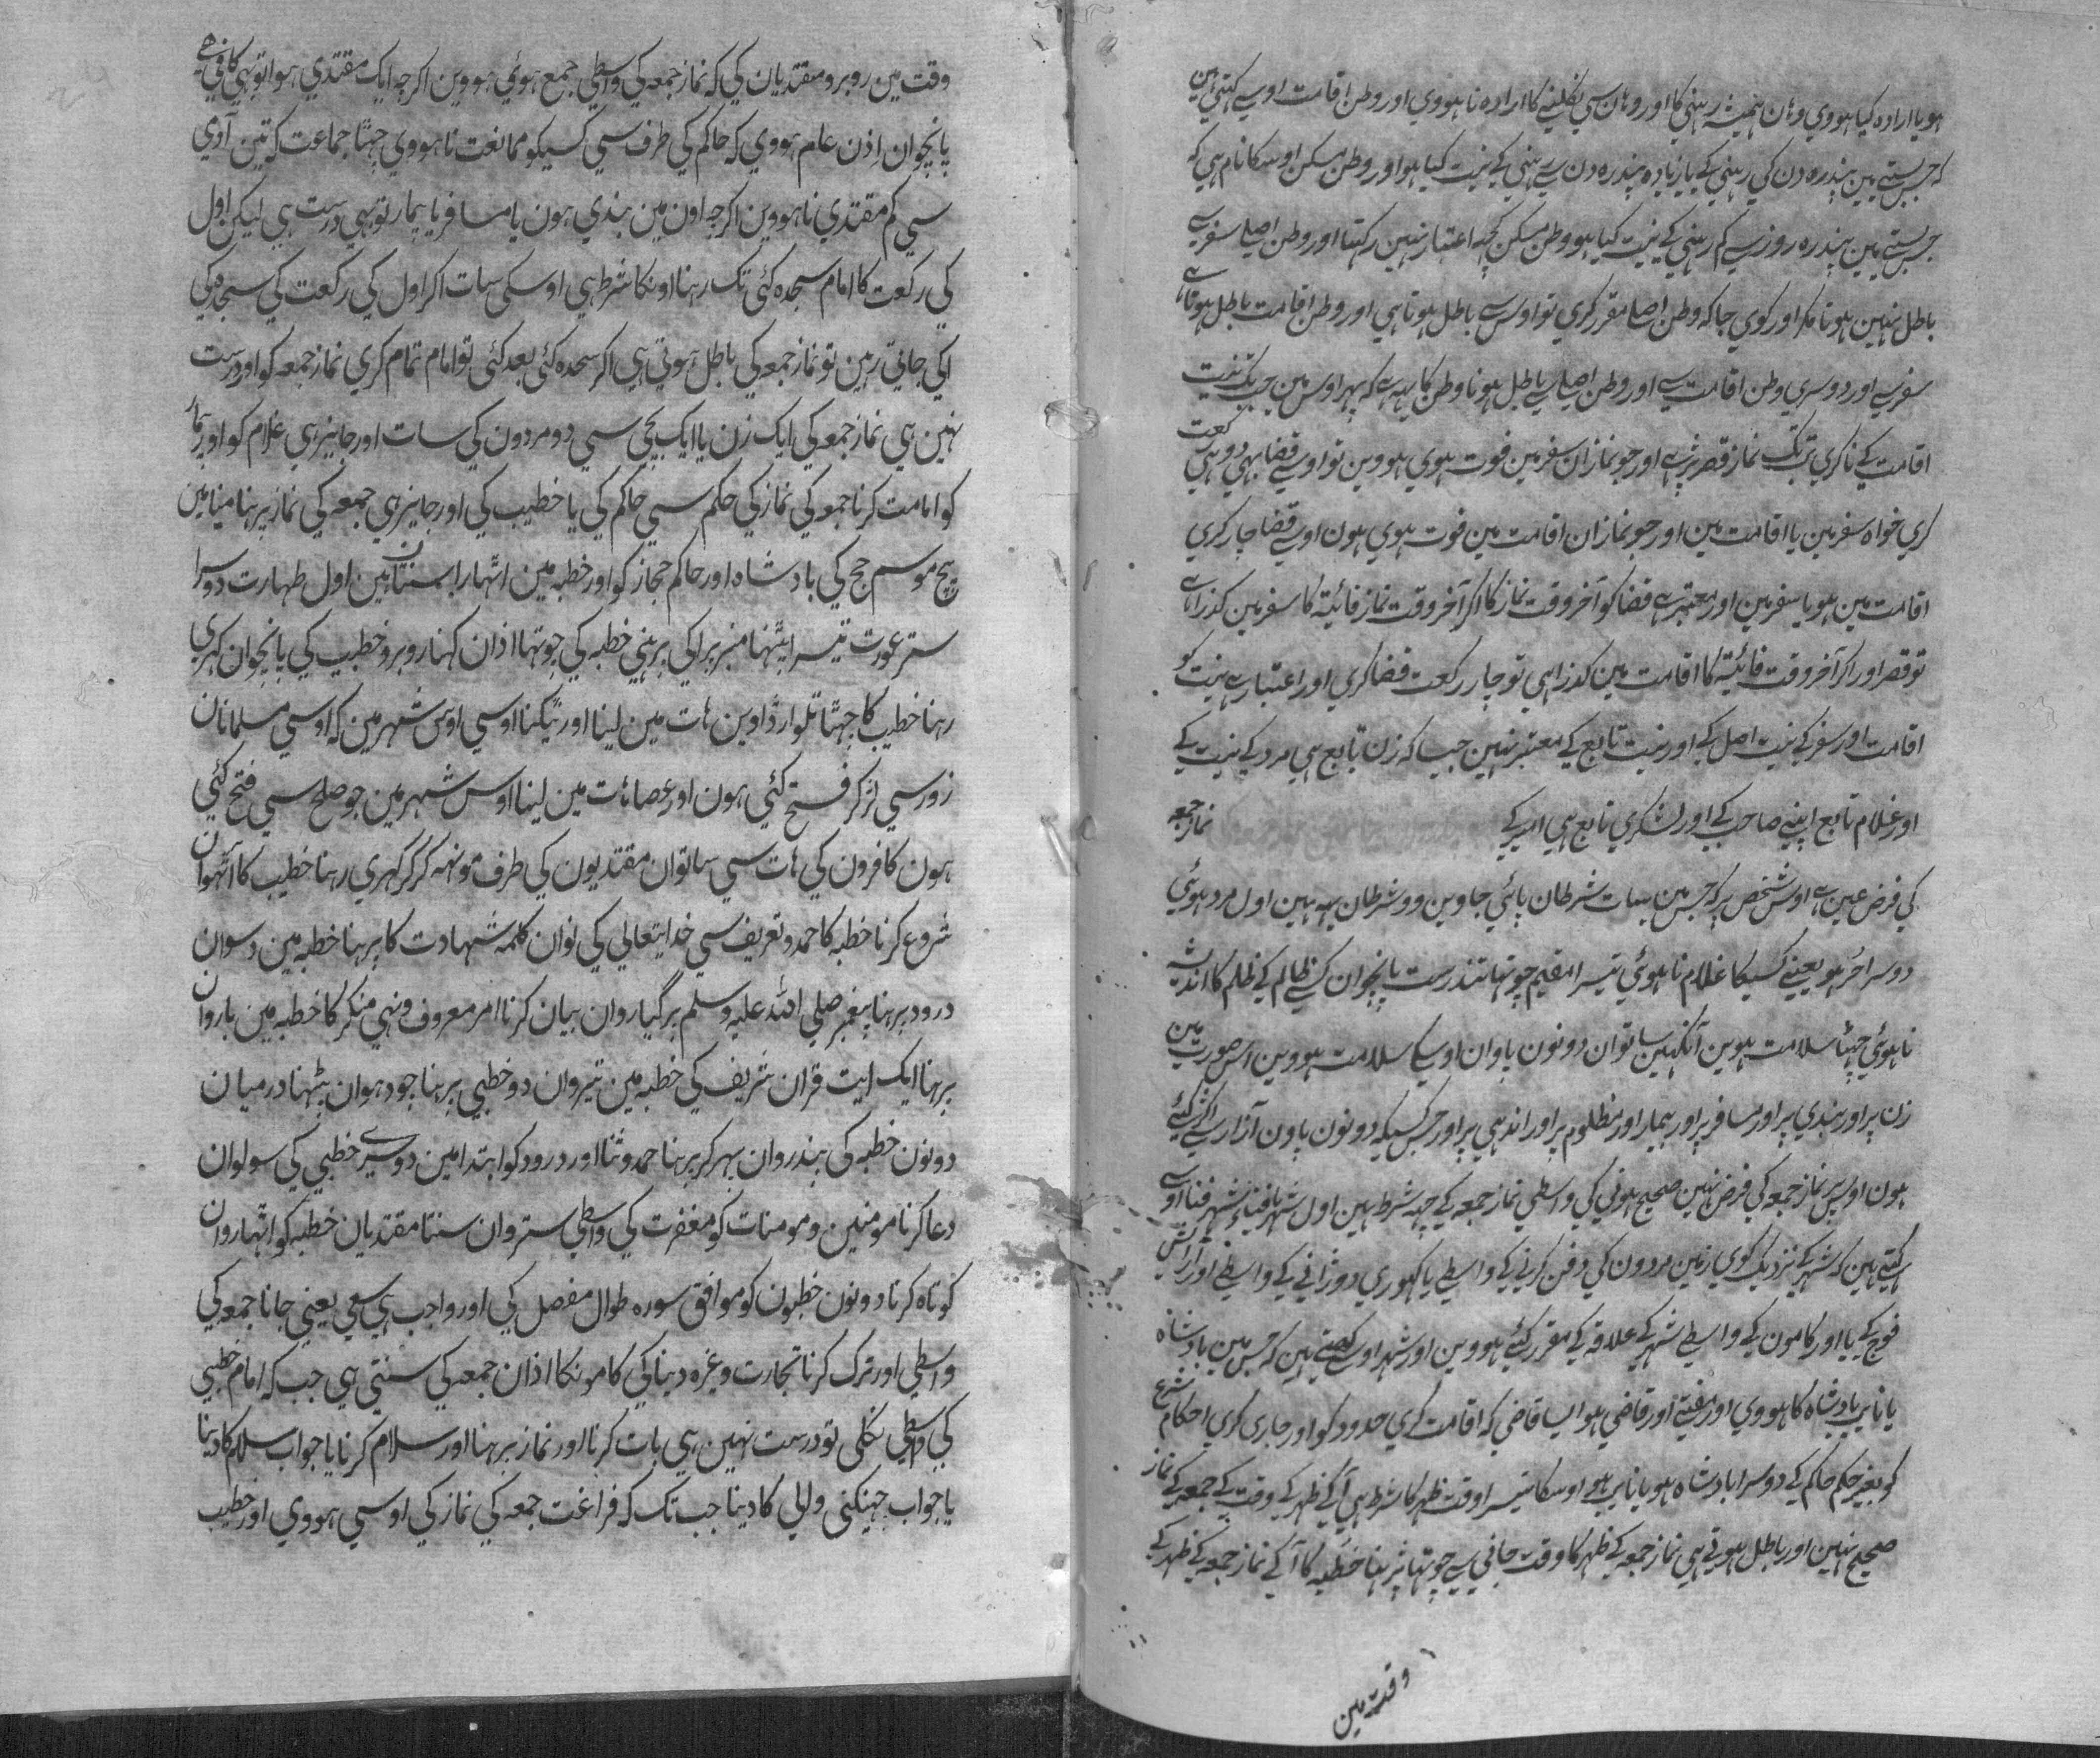 هو یا ارادہ کیا هووي وہان ہمیشہ رہنیکا اور وہان سی نکلنیکا ارادہ نا هووي اور وطن اقامت اوسی کہتی ہین
کہ جس بستی مین پندرہ دن کی رہنی کی یا زیادہ پندرہ دن سی رہنی کی نیت کیا هو اور وطن مسکن اوسکا نام ہی کہ
جس بستی مین پندرہ روز سی کم رہنی کی نیت کیا هو وطن مسکن کچہ اعتبار نہین رکہتا اور وطن اصلی سفر سی
باطل نہین هوتا مگر اور کوي جاکہ وطن اصلی مقرر کري تو اوس سی باطل هوتا ہی اور وطن اقامت باطل هوتا ہی
سفر سی اور دوسري وطن اقامت سی اور وطن اصلی سی باطل هونا وطن کا یہہ ہی کہ پہر اوس مین جب تک نیت
اقامت کی نا کري تب تک نماز قصر پڑہی اور جو نمازان سفر مین فوت هوي هووین تو اوسی قضا بہي دو ہي رکعت
کري خواہ سفر مین یا اقامت مین اور جو نمازان اقامت مین فوت هوي هون اوسی قضا چار کري
اقامت مین هو یا سفر مین اور معتبر ہی قضا کو آخر وقت نماز کا اگر آخر وقت نماز فائیتہ کا سفر مین کذرا ہی
تو قصر اور اکر آخر وقت فائیتہ کا اقامت مین کذرا ہی تو چار رکعت قضا کري اور اعتبار ہی نیت کو
اقامت اور سفر کی نیت اصل کی اور نیت تابع کی معتبر نہین جیسا کہ زن تابع ہی مرد کی نیت کی
اور غلام تابع اپنی صاحب کی اور لشکري تابع ہی امیر کی نماز جمعہ
کي فرض عین ہی اوس شخص پر کہ جس مین سات شرطان پائي جاوین وو شرطان یہہ ہین اول مرد هوئي
دوسرا حُر هو یعینی کسیکا غلام نا هوئي تیسرا مقیم چوتہا تندرست پانچوان کسی ظالم کی ظلم کا اندیشہ
نا هوئي چہٹا سلامت هوین آنکہین ساتوان دونون پاوان اوسکی سلامت هووین اس صورت مین
زن پر اور بندي پر اور مسافر پر اور بیمار اور مظلوم پر اور اندہي پر اور جس کسیکہ دونون پاون آزار سی اکڑ گئی
هون اوس پر نماز جمعہ کي فرض نہین صحیح هوني کي واسطي نماز جمعہ کی چہہ شرط ہین اول شہر یا فناء شہر فنا اوسی
کہتی ہین کہ شہر کی نزدیک کوي زمین مردون کي دفن کرنی کی واسطی یا کہوري دوڑانی کی واسطی اور آرایش
فوج کی یا اور کامون کی واسطی شہر کی علاقہ کی مقرر کئی هووین اور شہر اوسی کہتی ہین کہ جس مین بادشاہ
یا نایب بادشاہ کا هووي اور مفتی اور قاضي هو ایسا قاضي کہ اقامت کري حدود کو اور جاري کري احکام شرع
کو بغیر حکم حاکم کی دوسرا بادشاہ هو یا نایب هو اوسکا تیسرا وقت ظہر کا شرط ہی آکی ظہر کی وقت کی جمعہ کی نماز
صحیح نہین اور باطل هوتی ہی نماز جمعہ کی ظہر کا وقت جانی سی چوتہا پڑہنا خطبہ کا آکی نماز جمعہ کی ظہر کی
وقت مین
وقت مین روبرو مقتدیان کی کہ نماز جمعہ کی واسطي جمع هوئي هووین اکرچہ ایک مقتدي هوا تو بہي کافي ہی
پانچوان اِذن عام هووي کہ حاکم کي طرف سي کسیکو ممانعت نا هووي چہٹا جماعت کہ تین آدي
سي کم مقتدي نا هووین اکرچہ اون مین بندي هون یا مسافر یا بیمار تو بہي درست ہي لیکن اول
کي رکعت کا امام سجدہ کئي تک رہنا اونکا شرط ہي اوسکي سات اکر اول کي رکعت کي سجدہ کي
اکي جاتي رہین تو نماز جمعہ کي باطل هوتي ہي اکر سجدہ کئي بعد کئي تو امام تمام کري نماز جمعہ کو اور درست
نہین ہي نماز جمعہ کي ایک زن یا ایک بچي سي دو مردون کي سات اور جایز ہي غلام کو اور بیمار
کو امامت کرنا جمعہ کي نماز کي حکم سي حاکم کي یا خطیب کي اور جایز ہي جمعہ کي نماز پرہنا منا مین
بیچ موسم حج کي بادشاہ اور حاکم حجاز کو اور خطبہ مین اتہارا سنتان ہین اول طہارت دوسرا
ستر عورت تیسرا بیٹہنا منبر پر اکي پرہني خطبہ کي چوتہا اذان کہنا روبرو خطیب کي پانچوان کہري
رہنا خطیب کا چہٹا تلوار ڈاوین ہات مین لینا اور ٹیکنا اوسي اوس شہر مین کہ اوسي مسلمانان
زور سي لڑکر فتح کئي هون اور عصا ہات مین لینا اوس شہر مین جو صلح سي فتح کئي
هون کافرون کي ہات سي ساتوان مقتدیون کي طرف مونہہ کرکر کہري رہنا خطیب کا آٹہوان
شروع کرنا خطبہ کا حمد و تعریف سي خدایتعالي کي نوان کلمہ شہادت کا پرہنا خطبہ مین دسوان
درود پرہنا پیغمبر صلي اللہ علیہ وسلم پر گیاروان بیان کرنا امر معروف و نہي منکر کا خطبہ مین باروان
پرہنا ایک ایت قران شریف کي خطبہ مین تیروان دو خطبي پرہنا چودہوان بیٹہنا درمیان
دونون خطبہ کي پندروان پہر کر پرہنا حمد و ثنا اور درود کو ابتدا مین دوسرے خطبي کي سولوان
دعا کرنا مومنین و مومنات کو مغفرت کي واسطي ستروان سننا مقتدیان خطبہ کو اتہاروان
کوتاہ کرنا دونون خطبون کو موافق سورہ طوال مفصل کي اور واجب ہي سعي یعني جانا جمعہ کي
واسطي اور ترک کرنا تجارت وغیرہ دنیا کي کامونکا اذان جمعہ کي سنتي ہي جب کہ امام خطبي
کي واسطي نکلي تو درست نہین ہي بات کرنا اور نماز پرہنا اور سلام کرنا یا جواب سلام کا دینا
یا جواب چہینکني والي کا دینا جب تک کہ فراغت جمعہ کي نماز کي اوسي هووي اور خطیب